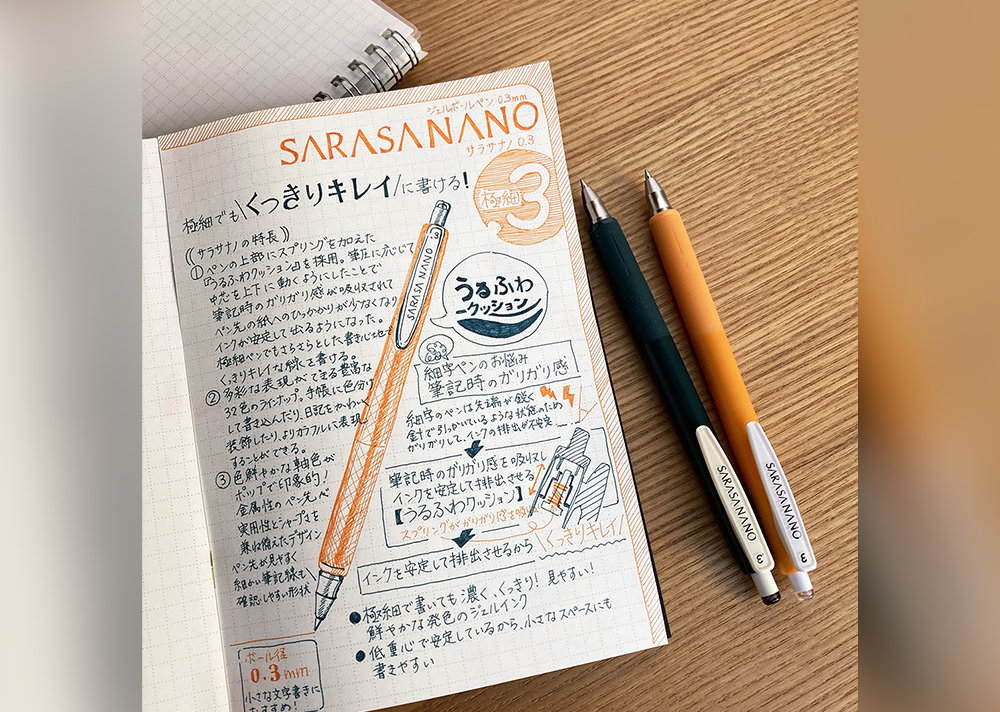 ジェルボールペン 0.3mm
SARASA NANO
サラサナノ 0.3
極細でも\くっきりキレイ/に書ける!
極細 3
《サラサナノの特長》
①ペンの上部にスプリングを加えた
『うるふわクッション』を採用。筆圧に応じて
中芯を上下に動くようにしたことで
筆記時のガリガリ感が吸収されて
ペン先の紙へのひっかかりが少なくなり
インクが安定して出るようになった。
極細ペンでもさらさらとした書き心地で
くっきりキレイな線を書ける。
②多彩な表現ができる豊富な
32色のラインナップ。手帳に色分け
して書き込んだり、日記をかわいく
装飾したり、よりカラフルに表現
することができる。
③色鮮やかな軸色が
ポップで印象的!
金属性のペン先で
実用性とシャープさを
兼ね備えたデザイン
ペン先が見やすく
細かい筆記線も
確認しやすい形状
ボール径
0.3mm
小さな文字書きに
おすすめ!
.3
SARASA NANO
うるふわ
クッション
細字ペンのお悩み
筆記時のガリガリ感
細字のペンは先端が鋭く
針で引っかいているような状態のため
ガリガリして、インクの排出が不安定
筆記時のガリガリ感を吸収し
インクを安定して排出させる
【うるふわクッション】
スプリングがガリガリ感を吸収
インクを安定して排出させるから
\くっきりキレイ/
●極細で書いても濃く、くっきり!見やすい!
鮮やかな発色のジェルインク
●低重心で安定しているから、小さなスペースにも
書きやすい
SARASA NANO
.3
SARASA NANO
.3